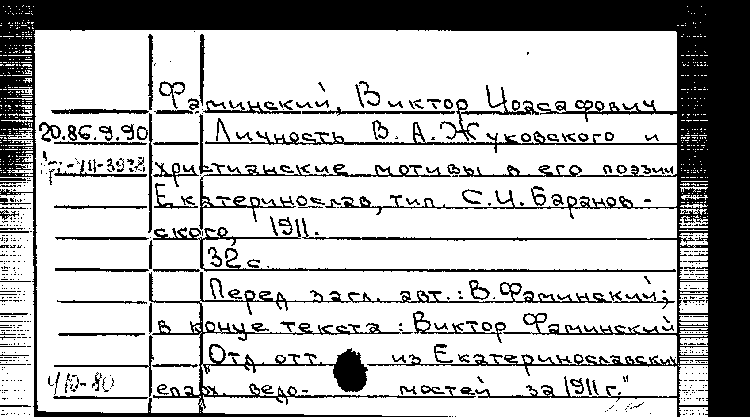 Фаминский, Виктор Иоасафович
20.86.9.90 Личность В. А. Жуковского и
христианские мотивы в его поэзии
Екатеринослав, тип. С.И. Баранов-
ского, 1911.
32 с.
Перед загл. авт.: В. Фаминский;
в конце текста: Виктор Фаминский
"Отд. отт. из Екатеринославских
епарх. ведо- мостей за 1911 г."